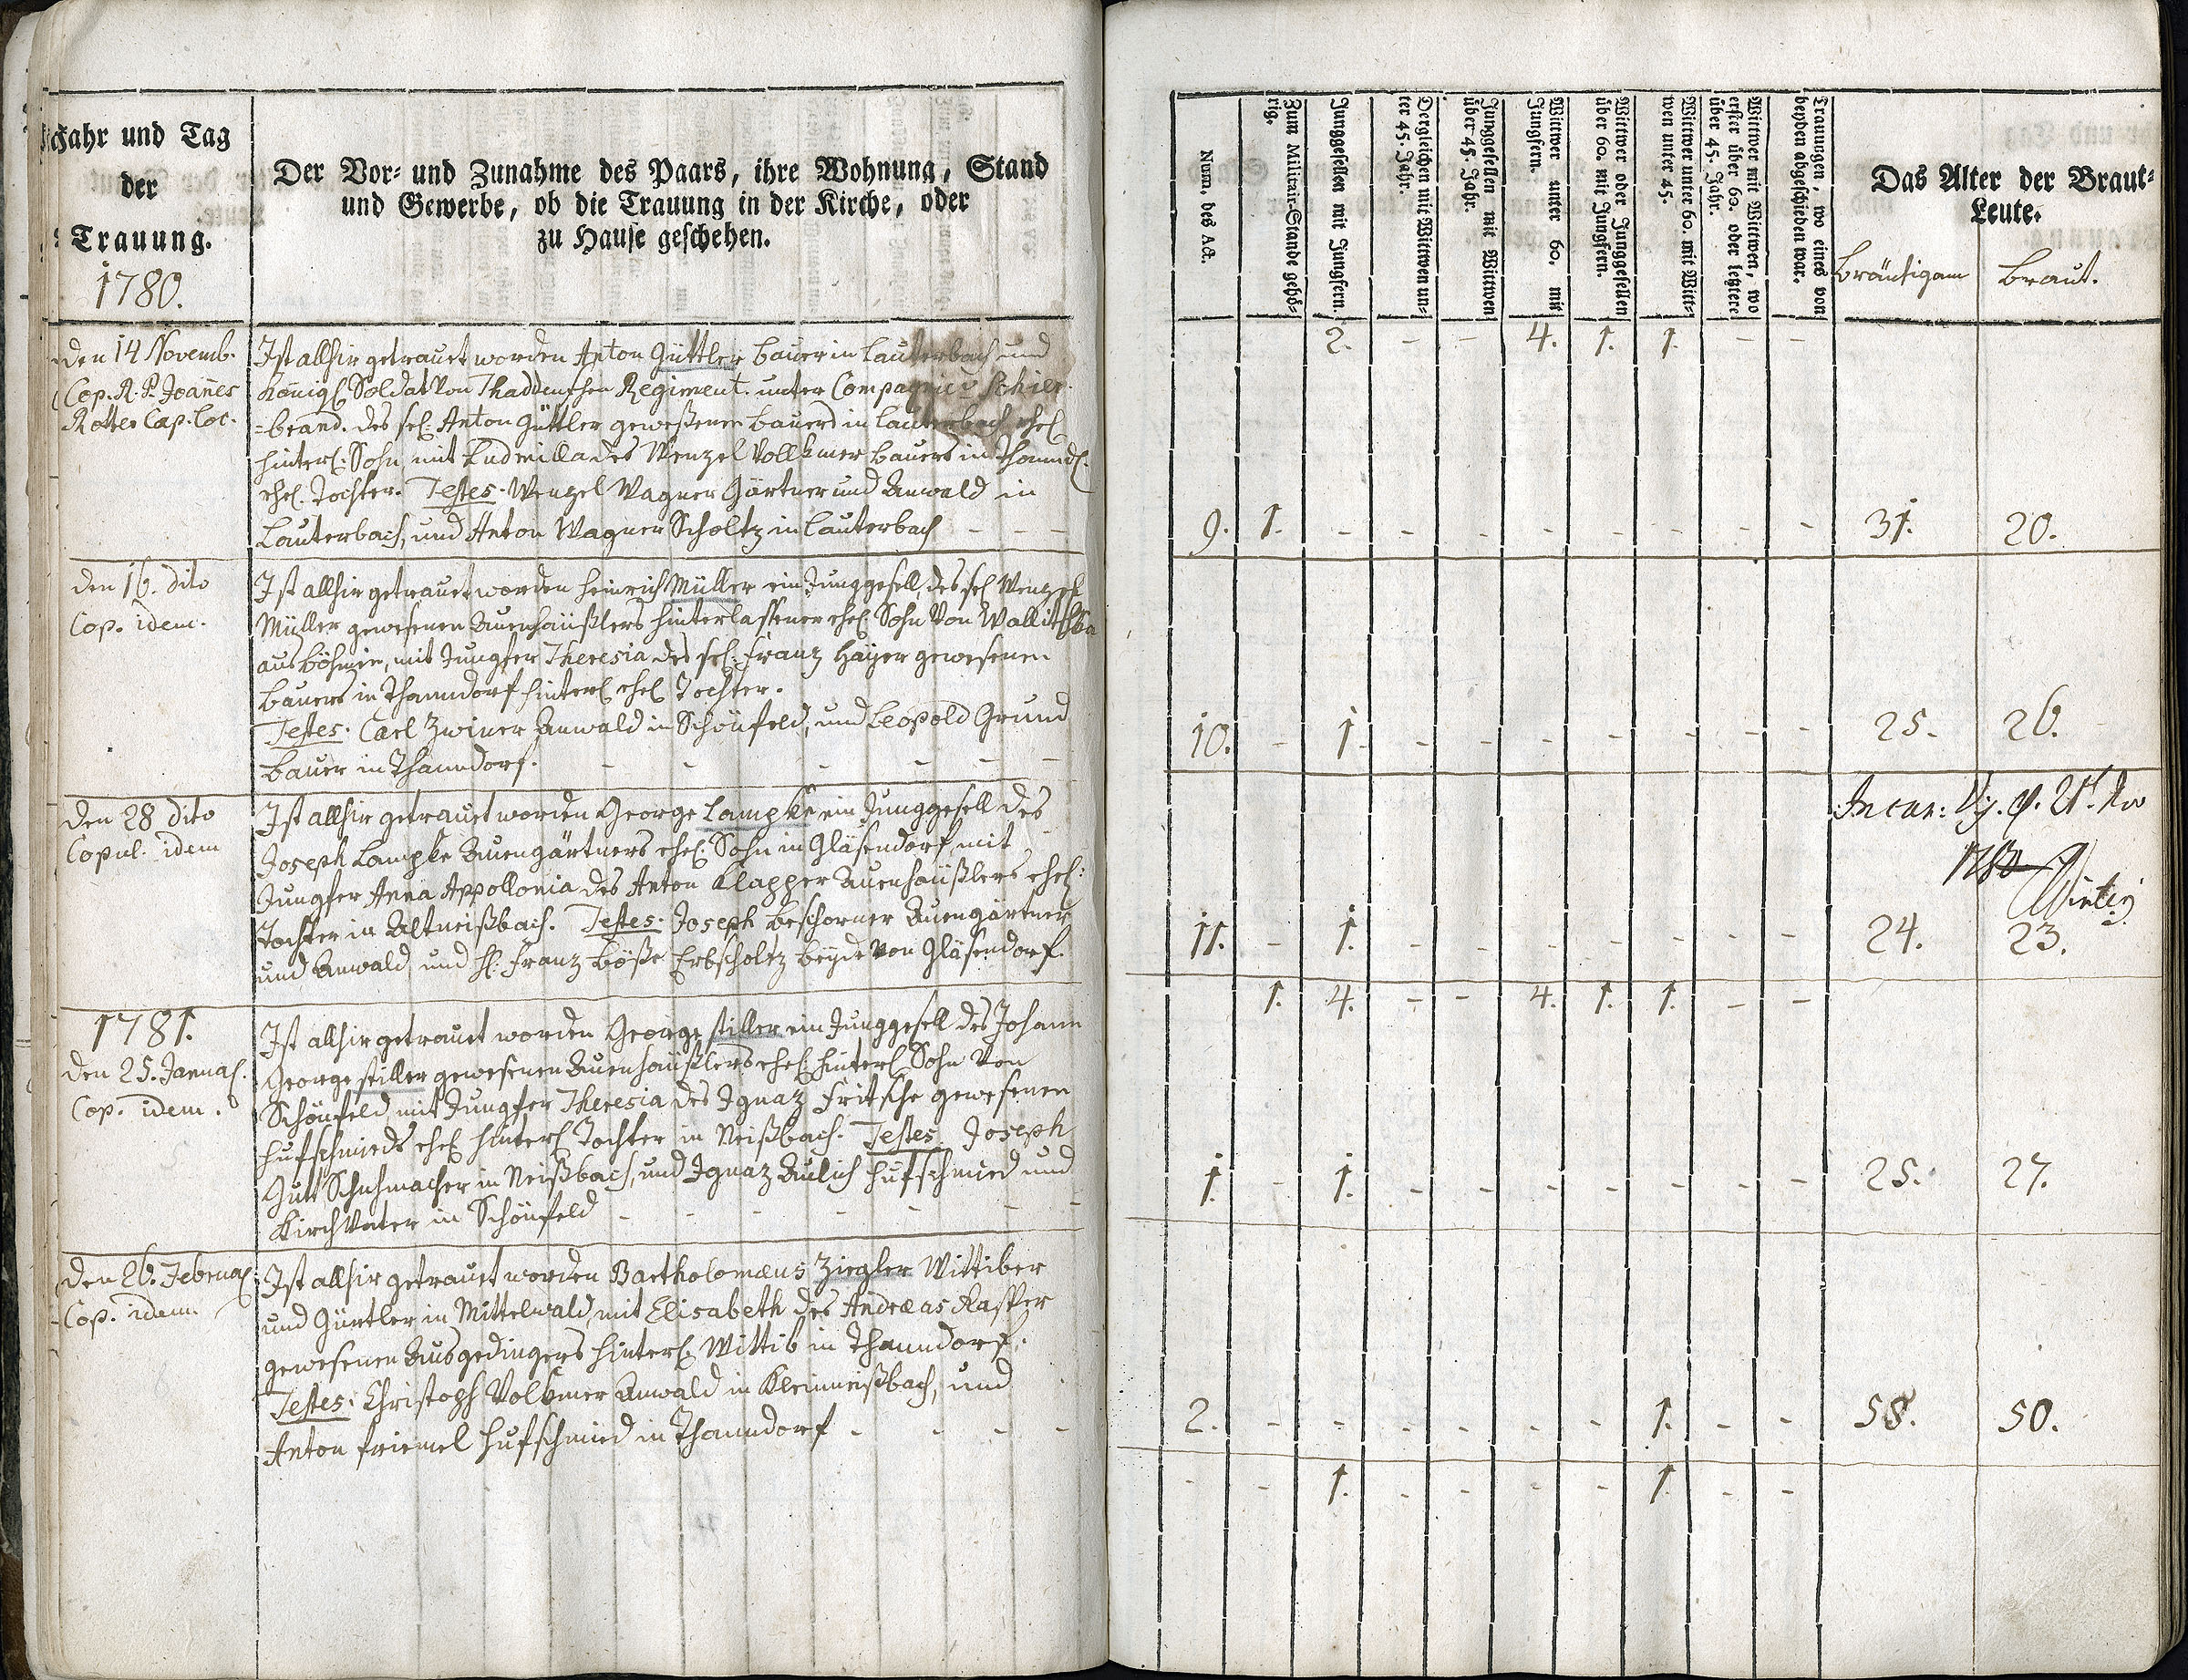 Jahr und Tag
der
Trauung.
1780.
Der Vor- und Zunahme des Paars, ihre Wohnung, Stand
und Gewerbe, ob die Trauung in der Kirche, oder
zu Hause geschehen.
den 14 Novemb.
Cop. R. P. Joañes
Rotter Cap. Loc.
Ist allhir getrauet worden Anton Güttler, Bauer in Lauterbach und
Königl Soldat von Thaddenschen Regiment. unter Compagnie v
=brand. des sel. Anton Güttler geweßenen Bauers in Lauterbach ehel
hinterl. Sohn, mit Ludmilla des Wenzel Vollkmer Bauers in Thannd.
ehel. Tochter. Testes. Wenzel Wagner Gärtner und Anwald in
Lauterbach, und Anton Wagner Scholtz in Lauterbach - - -
den 16. dito
Cop. idem.
Ist allhir getrauet worden Heinrich Müller ein Junggesell, des sel Wenzel
Müller gewesenen Auenhäußlers hinterlassener ehel. Sohn von
aus Böhmen, mit Jungfer Theresia des sel. Franz Hayer gewesenen
Bauers in Thanndorf hinterl ehel Tochter.
Testes. Carl Zwiner Anwald in Schönfeld, und Leopold Grund
Bauer in Thanndorf. - - - - - -
den 28 dito
Copul. idem
Ist allhir getrauet worden George Lampke ein Junggesell des
Joseph Lampke Auengärtners ehel. Sohn in Gläsendorf, mit
Jungfer Anna Appollonia des Anton Klapper Auenhäußlers ehel:
Tochter in Altneißbach. Testes: Joseph Beschorner Auengärtner
und Anwald, und H: Franz Böße Erbscholtz beyde von Gläsendorf.
1781.
den 25. Januar.
Cop. idem.
Ist allhir getrauet worden George Stiller ein Junggesell des Johann
George Stiller gewesenen Auenhäußlers ehel. hinterl Sohn von
Schönfeld, mit Jungfer Theresia des Ignaz Fritsche gewesenen
Hufschmieds ehel hinterl Tochter in Neißbach. Testes. Joseph
Gutt Schuhmacher in Neißbach, und Ignaz Aulich Hufschmied und
Kirchvater in Schönfeld - - - - - - -
den 26. Februar
Cop. idem
Ist allhir getrauet worden Bartholomæus Ziegler Wittiber
und Gürtler in Mittelwald, mit Elisabeth des Andreas Rasper
gewesenen Ausgedingers hinterl. Wittib in Thanndorf.
Testes: Christoph Volkmer Anwald in Kleinneißbach, und
Anton Friemel Hufschmied in Thanndorf - - - -
Num. des Act.
Zum Militair-Stande gehö-
rig.
Junggesellen mit Jungfern.
Dergleichen mit Wittwen un-
ter 45. Jahr.
Junggesellen mit Wittwen
über 45. Jahr.
Wittwer unter 60, mit
Jungfern.
Wittwer oder Junggesellen
über 60. mit Jungfern.
Wittwer unter 60. mit Witt-
wen unter 45.
Wittwer mit Wittwen, wo
erster über 60. oder letztere
über 45. Jahr.
Trauungen, wo eines von
beyden abgeschieden war.
Das Alter der Braut-
Leute.
Bräutigam Braut.
2. - - 4. 1. 1. - -
9. 1. - - - - - - - - 31. 20.
10. - 1. - - - - - - - 25. 26.
1780
11. - 1. - - - - - - - 24. 23.
1. 4. - - 4. 1. 1. - -
1. - 1. - - - - - - - 25. 27.
2. - - - - - - 1. - - 58. 50.
- - 1. - - - - 1. - -